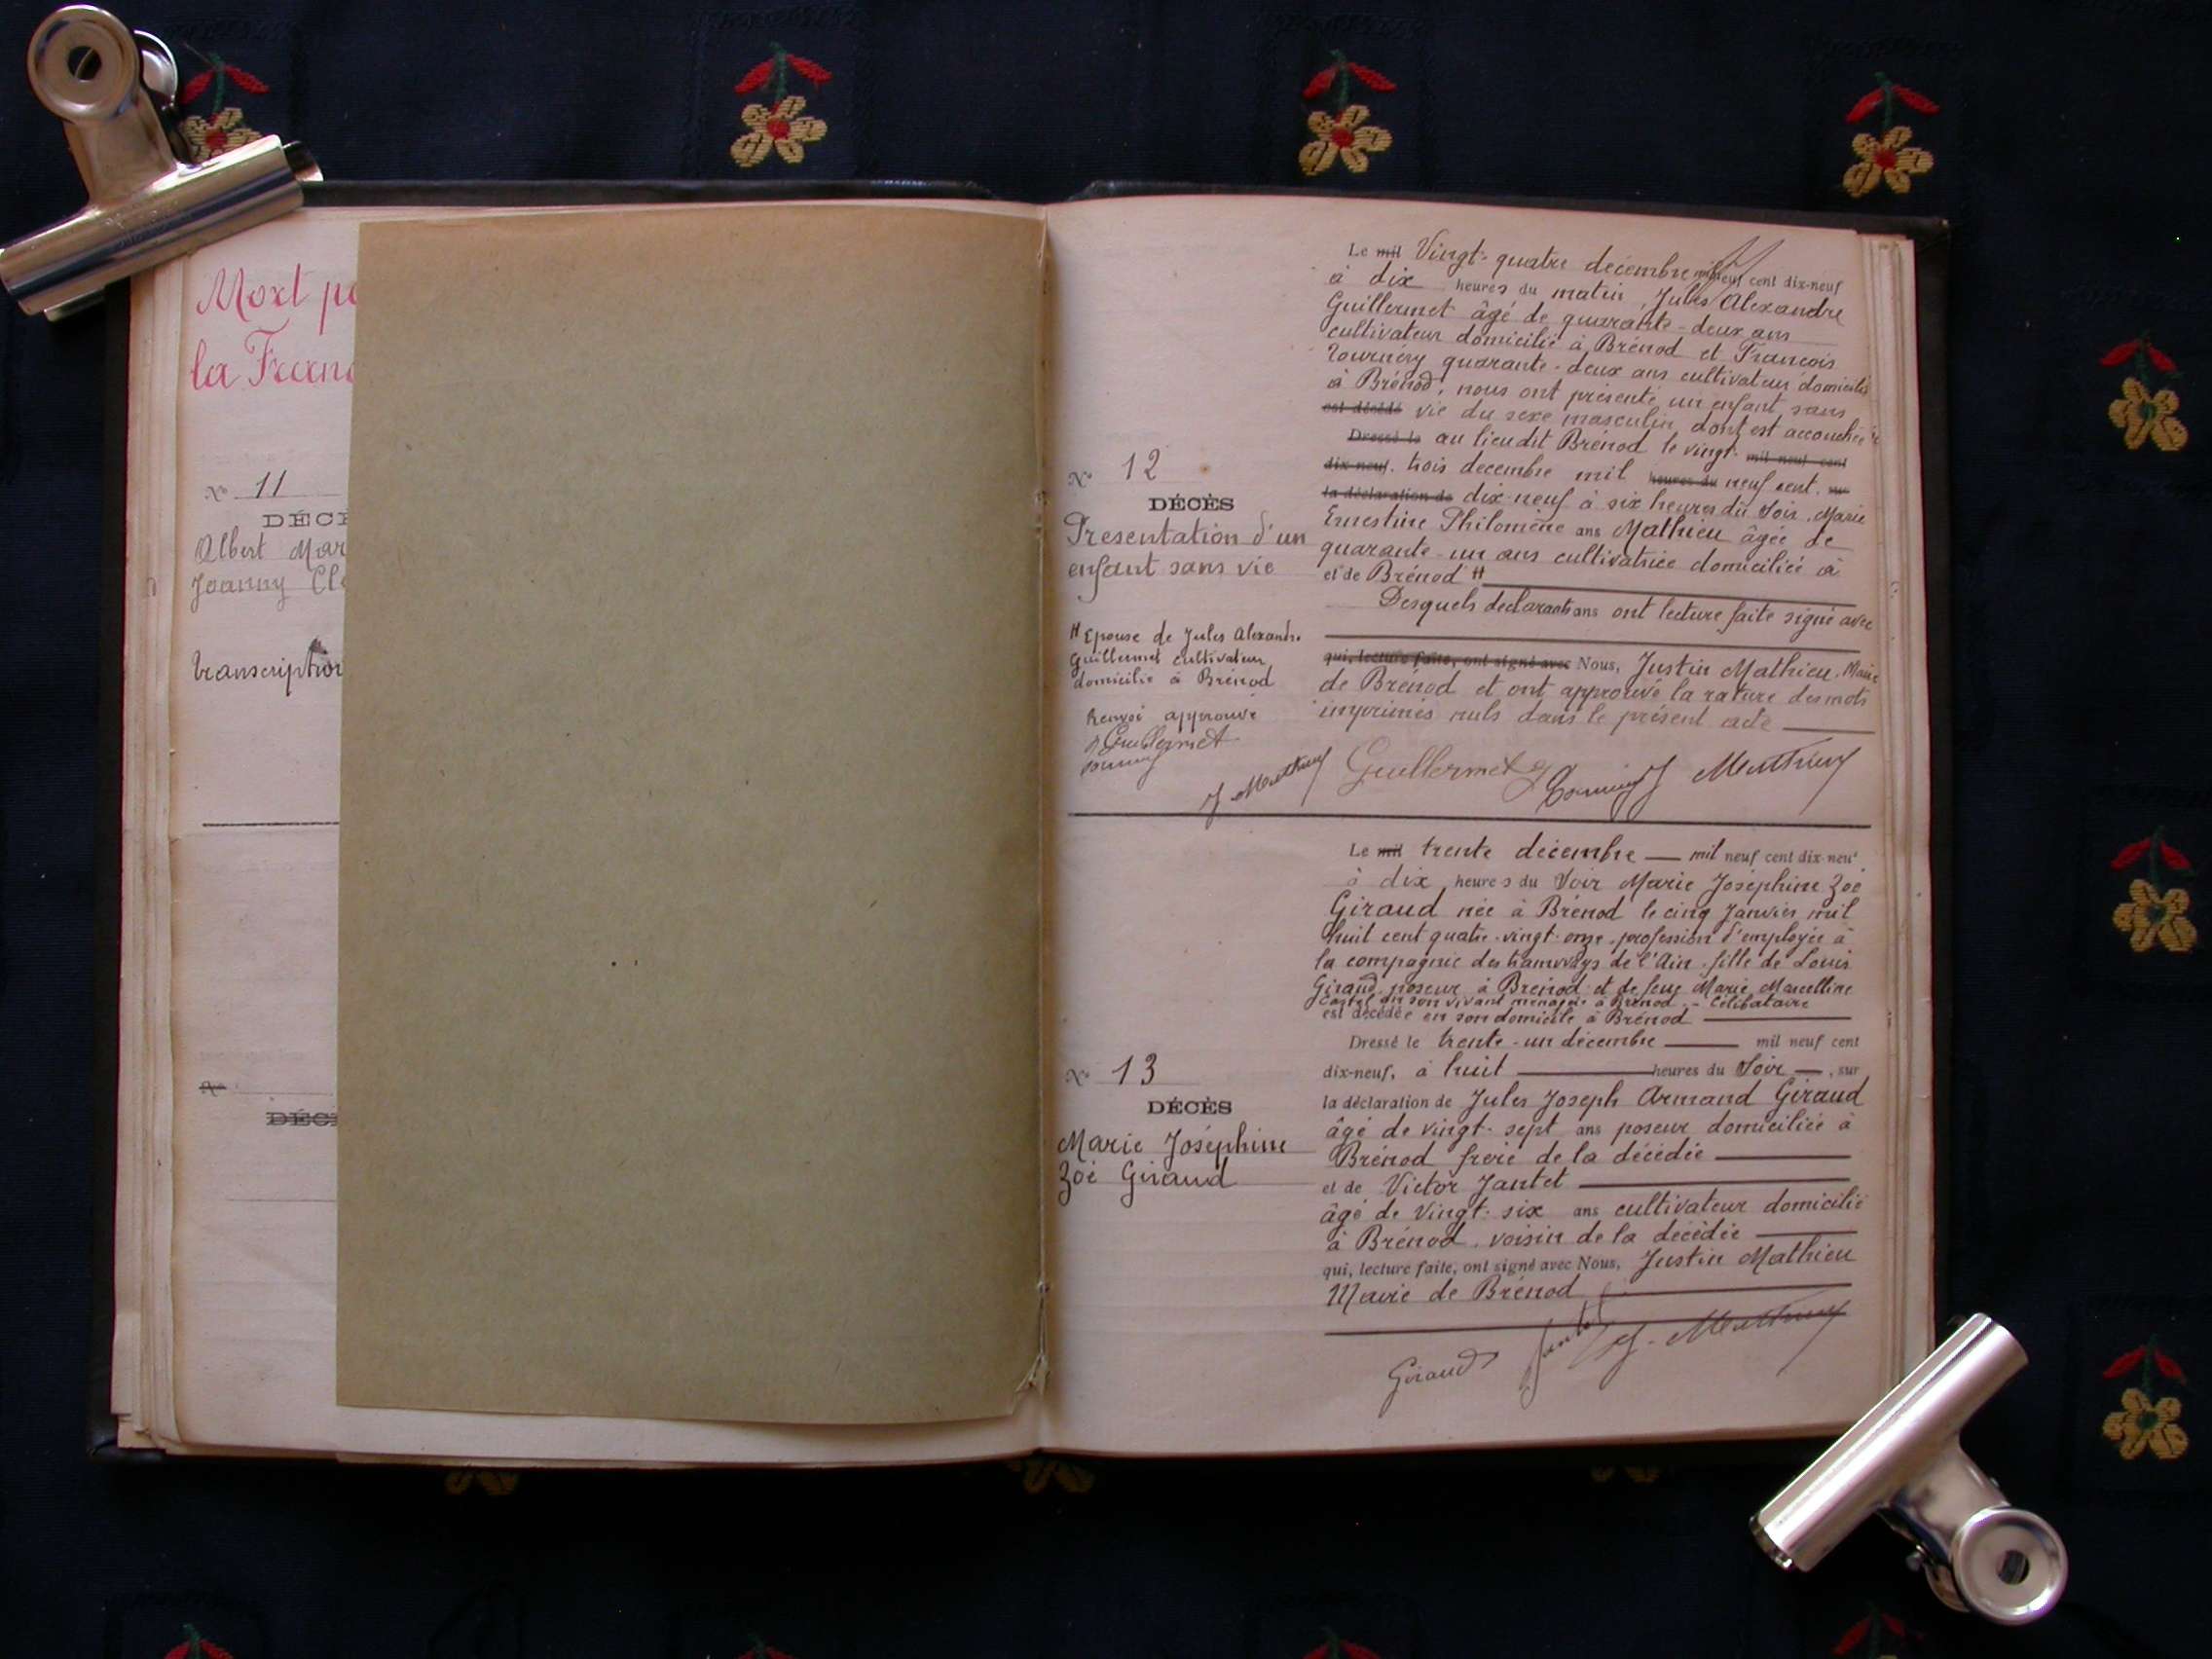 Mort po
la Franc
N° 11
DÉCÈ
Albert Mar
Joanny Cl
transcription
N°
DÉCÈ
N° 12
DÉCÈS
Presentation d'un
enfant sans vie
H Epouse de Jules Alexandre
Guillermet cultivateur
domicilié à Brénod
Renvoi approuvé
Guillermet
Le mil Vingt-quatre décembre mil neuf cent dix-neuf
à dix heures du matin, Jules Alexandre
Guillermet âgé de quarante-deux ans
cultivateur domicilié à Brénod et François
quarante-deux ans cultivateur domicilié
à Brénod, nous ont présenté un enfant sans
est décédé vie du sexe masculin dont est accouchée
Dressé le au lieudit Brénod le vingt- mil neuf cent
dix-neuf, trois decembre mil heures du neuf cent, sur
la déclaration de dix-neuf à six heures du soir, Marie
Ernestine Philomène ans Mathieu âgée de
quarante-un ans cultivatrice domiciliée à
et de Brénod H
Desquels déclarants ans ont lecture faite signé avec
qui, lecture faite, ont signé avec Nous, Justin Mathieu, Maire
de Brénod et ont approuvé la rature des mots
imprimés nuls dans le présent acte
J Mathieu Guillermet J Mathieu
N° 13
DÉCÈS
Marie Joséphine
Zoé Giraud
Le mil trente décembre mil neuf cent dix-neuf
à dix heures du Soir Marie Joséphine Zoé
Giraud née à Brénod le cinq Janvier mil
huit cent quatre-vingt-onze, profession d'employée à
la compagnie des tramways de l'Ain, fille de Louis
Giraud, poseur à Brénod et de feue Marie Marcelline
en son vivant ménagère à Brénod - Célibataire
est décédée en son domicile à Brénod
Dressé le trente-un décembre mil neuf cent
dix-neuf, à huit heures du Soir, sur
la déclaration de Jules Joseph Armand Giraud
âgé de vingt-sept ans poseur domiciliée à
Brénod frère de la décédée
et de Victor Jantet
âgé de Vingt-six ans cultivateur domicilié
à Brénod, voisin de la décédée
qui, lecture faite, ont signé avec Nous, Justin Mathieu
Maire de Brénod
Giraud Jantet J. Mathieu